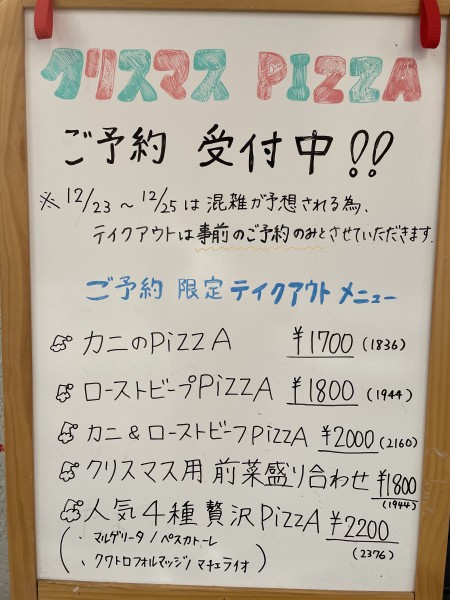 クリスマス PIZZA
ご予約 受付中!!
※ 12/23 ~ 12/25 は 混雑が予想される為、
テイクアウトは事前のご予約のみとさせていただきます.
ご予約 限定 テイクアウト メニュー
カニのPiZZA ¥1700 (1836)
ローストビーフPiZZA ¥1800 (1944)
カニ & ローストビーフPiZZA ¥2000 (2160)
クリスマス用 前菜盛り合わせ ¥1800 (1944)
人気4種 贅沢PiZZA ¥2200 (2376)
(、マルゲリータ / ペスカトーレ
、クワトロフォルマッジ / マチェライオ)